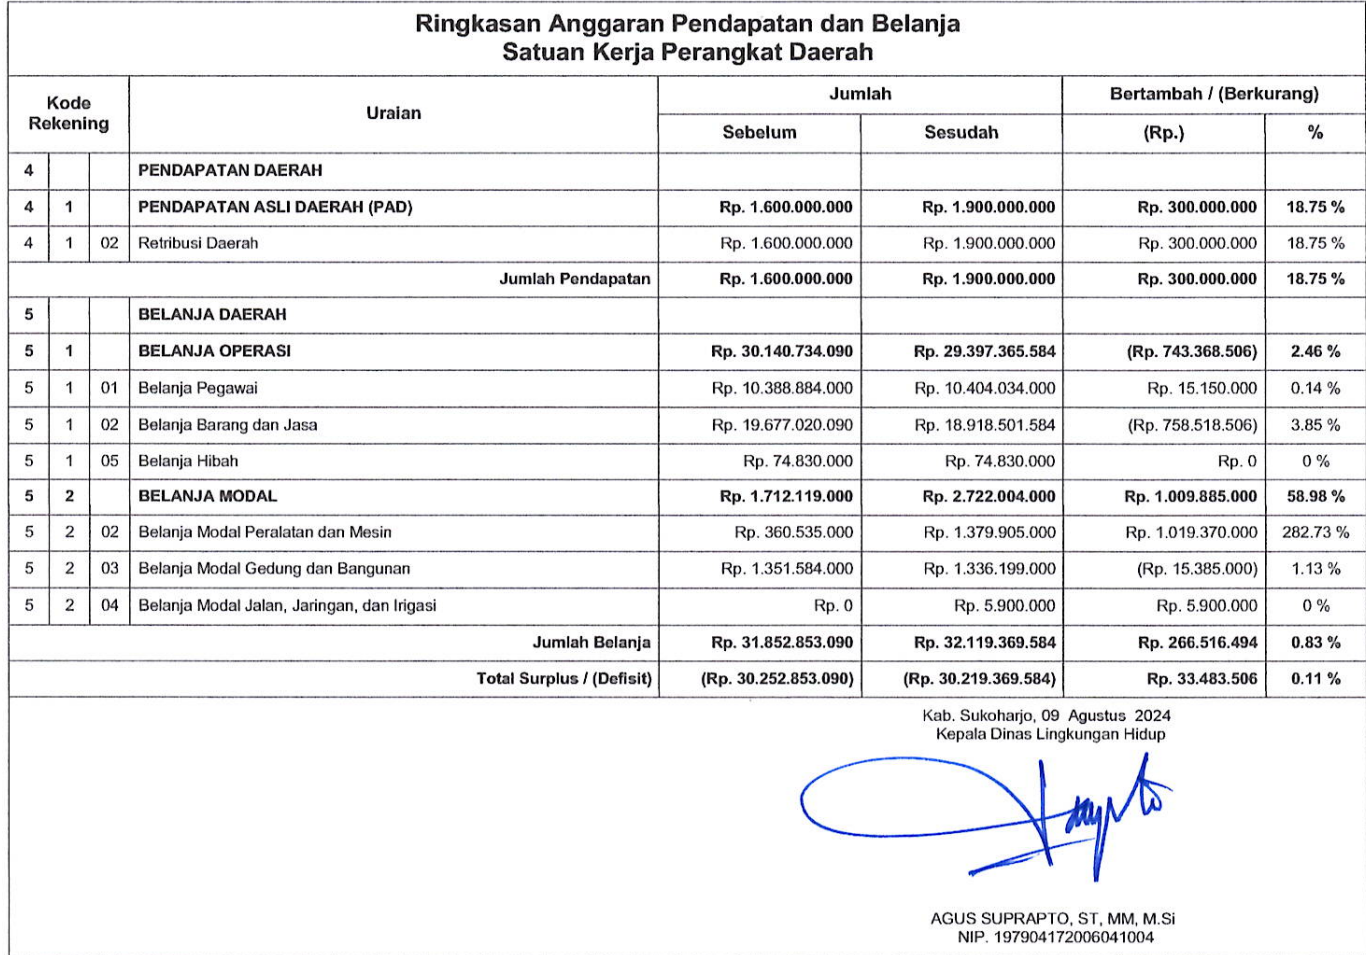 Ringkasan Anggaran Pendapatan dan Belanja
Satuan Kerja Perangkat Daerah
Kode Rekening Uraian Jumlah Bertambah / (Berkurang)
Sebelum Sesudah (Rp.) %
4 PENDAPATAN DAERAH
4 1 PENDAPATAN ASLI DAERAH (PAD) Rp. 1.600.000.000 Rp. 1.900.000.000 Rp. 300.000.000 18.75 %
4 1 02 Retribusi Daerah Rp. 1.600.000.000 Rp. 1.900.000.000 Rp. 300.000.000 18.75 %
Jumlah Pendapatan Rp. 1.600.000.000 Rp. 1.900.000.000 Rp. 300.000.000 18.75 %
5 BELANJA DAERAH
5 1 BELANJA OPERASI Rp. 30.140.734.090 Rp. 29.397.365.584 (Rp. 743.368.506) 2.46 %
5 1 01 Belanja Pegawai Rp. 10.388.884.000 Rp. 10.404.034.000 Rp. 15.150.000 0.14 %
5 1 02 Belanja Barang dan Jasa Rp. 19.677.020.090 Rp. 18.918.501.584 (Rp. 758.518.506) 3.85 %
5 1 05 Belanja Hibah Rp. 74.830.000 Rp. 74.830.000 Rp. 0 0 %
5 2 BELANJA MODAL Rp. 1.712.119.000 Rp. 2.722.004.000 Rp. 1.009.885.000 58.98 %
5 2 02 Belanja Modal Peralatan dan Mesin Rp. 360.535.000 Rp. 1.379.905.000 Rp. 1.019.370.000 282.73 %
5 2 03 Belanja Modal Gedung dan Bangunan Rp. 1.351.584.000 Rp. 1.336.199.000 (Rp. 15.385.000) 1.13 %
5 2 04 Belanja Modal Jalan, Jaringan, dan Irigasi Rp. 0 Rp. 5.900.000 Rp. 5.900.000 0 %
Jumlah Belanja Rp. 31.852.853.090 Rp. 32.119.369.584 Rp. 266.516.494 0.83 %
Total Surplus / (Defisit) (Rp. 30.252.853.090) (Rp. 30.219.369.584) Rp. 33.483.506 0.11 %
Kab. Sukoharjo, 09 Agustus 2024
Kepala Dinas Lingkungan Hidup
AGUS SUPRAPTO, ST, MM, M.Si
NIP. 197904172006041004